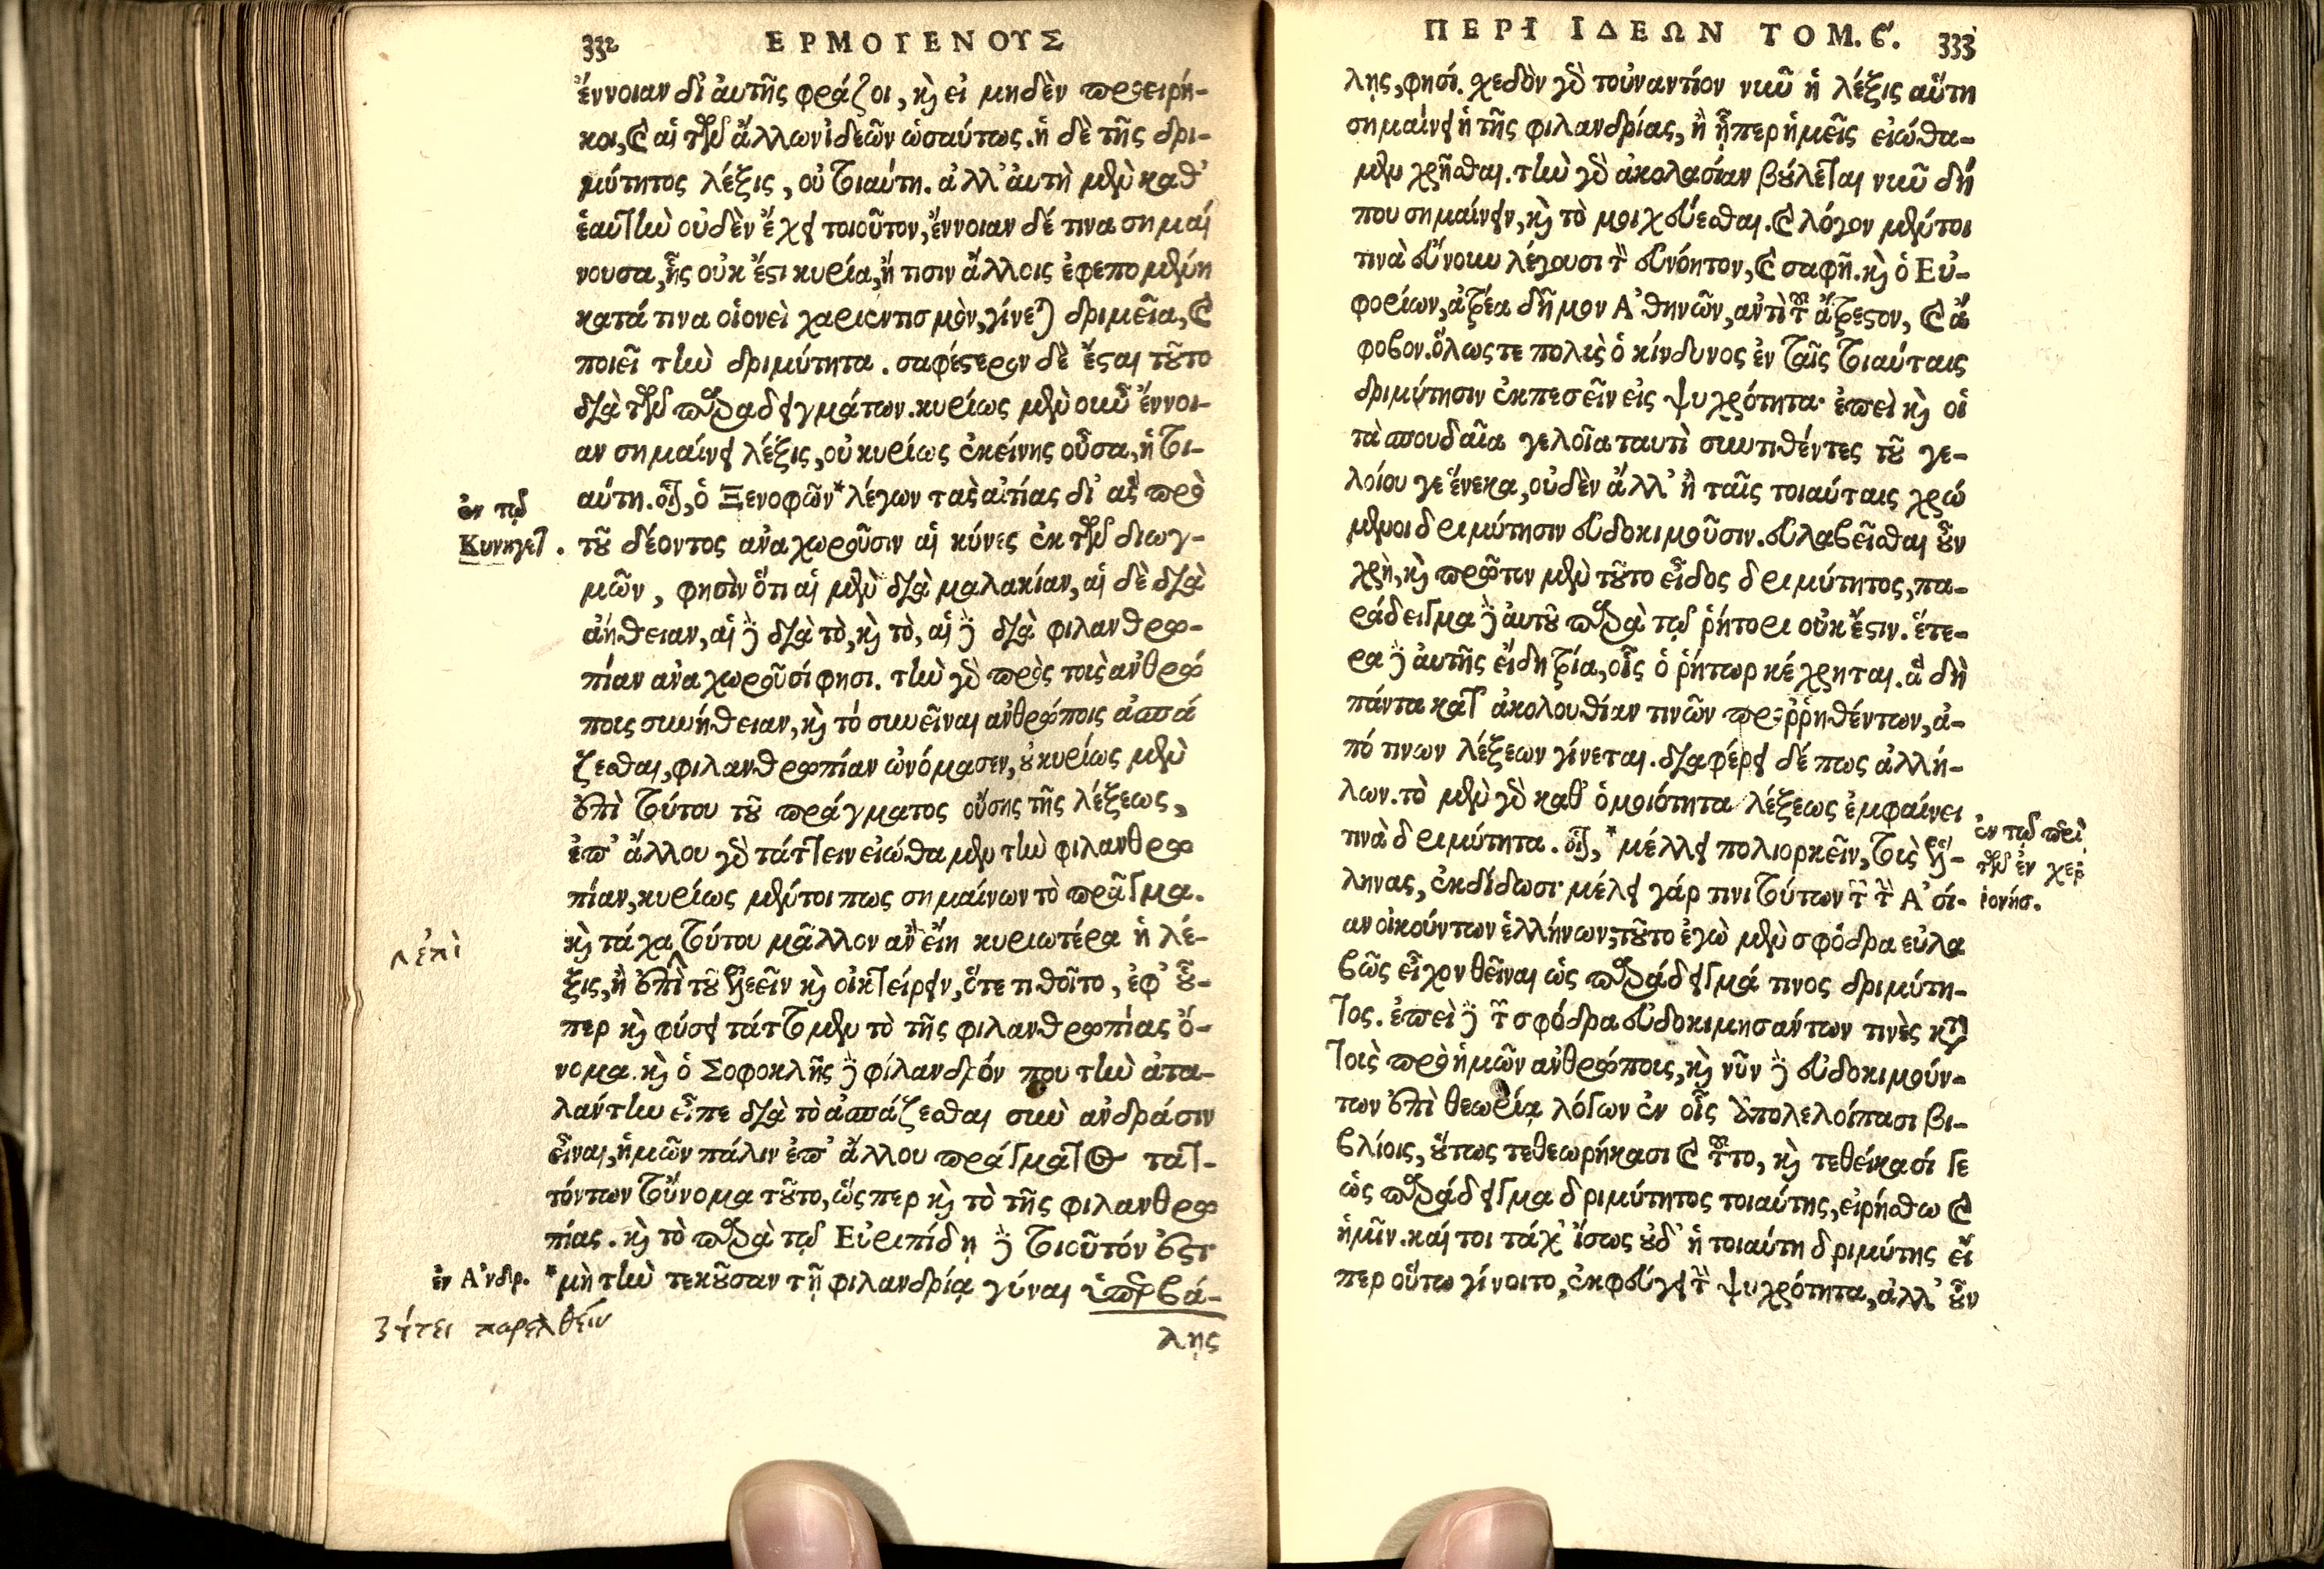 332 ΕΡΜΟΓΕΝΟΥΣ
ἔννοιαν δι' αὐτῆς φράζοι, καὶ εἰ μηδὲν προειρή-
κοι, καὶ αἱ τῶν ἄλλων ἰδεῶν ὡσαύτως. ἡ δὲ τῆς δρι-
μύτητος λέξις, οὐ τοιαύτη. ἀλλ' αὐτὴ μὲν καθ'
ἑαυτὴν οὐδὲν ἔχει τοιοῦτον, ἔννοιαν δέ τινα σημαί
νουσα, ἧς οὐκ ἔστι κυρία, ἤ τισιν ἄλλοις ἐφεπομένη
κατά τινα οἱονεὶ χαριεντισμὸν, γίνεται δριμεῖα, καὶ
ποιεῖ τὴν δριμύτητα. σαφέστερον δὲ ἔσται τοῦτο
διὰ τῶν παραδειγμάτων. κυρίως μὲν οὖν ἔννοι-
αν σημαίνει λέξις, οὐ κυρίως ἐκείνης οὖσα, ἡ τοι-
αύτη. οἷον, ὁ Ξενοφῶν* λέγων τὰς αἰτίας δι' ἃς πρὸ
ἐν τῷ
Κυνηγετ.
τοῦ δέοντος ἀναχωροῦσιν αἱ κύνες ἐκ τῶν διωγ-
μῶν, φησὶν ὅτι αἱ μὲν διὰ μαλακίαν, αἱ δὲ διὰ
ἀήθειαν, αἱ δὲ διὰ τὸ, καὶ τὸ, αἱ δὲ διὰ φιλανθρω-
πίαν ἀναχωροῦσί φησι. τὴν γὰρ πρὸς τοῖς ἀνθρώ
ποις συνήθειαν, καὶ τό συνεῖναι ἀνθρώποις ἀσπά
ζεσθαι, φιλανθρωπίαν ὠνόμασεν, οὐ κυρίως μὲν
ἐπὶ τούτου τοῦ πράγματος οὔσης τῆς λέξεως,
ἐπ' ἄλλου γὰρ τάττειν εἰώθαμεν τὴν φιλανθρω
πίαν, κυρίως μέντοι πως σημαίνων τὸ πρᾶγμα.
καὶ τάχα τούτου μᾶλλον ἂν εἴη κυριωτέρα ἡ λέ-
ἐπὶ
ξις, ἢ ἐπὶ τοῦ ἐλεεῖν καὶ οἰκτείρειν, ὅτε τιθοῖτο, ἐφ' οὗ-
περ καὶ φύσει τάττομεν τὸ τῆς φιλανθρωπίας ὄ-
νομα. καὶ ὁ Σοφοκλῆς δὲ φίλανδρόν που τὴν ἀτα-
λάντην εἶπε διὰ τὸ ἀσπάζεσθαι σὺν ἀνδράσιν
εἶναι, ἡμῶν πάλιν ἐπ' ἄλλου πράγματος τατ-
τόντων τοὔνομα τοῦτο, ὥσπερ καὶ τὸ τῆς φιλανθρω
πίας. καὶ τὸ παρὰ τῷ Εὐριπίδῃ δὲ τοιοῦτόν ἐστι·
ἐν Ἀνδρ. *μὴ τὴν τεκοῦσαν τῇ φιλανδρίᾳ γύναι ὑπερβά-
ζήτει παρελθεῖν
λῃς
ΠΕΡΙ ΙΔΕΩΝ ΤΟΜ. ϛ. 333
λῃς, φησί. σχεδὸν γὰρ τοὐναντίον νῦν ἡ λέξις αὕτη
σημαίνει ἡ τῆς φιλανδρίας, ἢ ᾗπερ ἡμεῖς εἰώθα-
μεν χρῆσθαι. τὴν γὰρ ἀκολασίαν βούλεται νῦν δή
που σημαίνειν, καὶ τὸ μοιχεύεσθαι. καὶ λόγον μέντοι
τινὰ εὔνουν λέγουσι τὸν εὐνόητον, καὶ σαφῆ. καὶ ὁ Εὐ-
φορίων, ἀτρέα δῆμον Ἀθηνῶν, ἀντὶ τοῦ ἄτρεστον, καὶ ἄ
φοβον. ὅλως τε πολὺς ὁ κίνδυνος ἐν ταῖς τοιαύταις
δριμύτησιν ἐκπεσεῖν εἰς ψυχρότητα· ἐπεὶ καὶ οἱ
τὰ σπουδαῖα γελοῖα ταυτὶ συντιθέντες τοῦ γε-
λοίου γε ἕνεκα, οὐδὲν ἄλλ' ἢ ταῖς τοιαύταις χρώ
μενοι δριμύτησιν εὐδοκιμοῦσιν. εὐλαβεῖσθαι οὖν
χρὴ, καὶ πρῶτον μὲν τοῦτο εἶδος δριμύτητος, πα-
ράδειγμα δὲ αὐτοῦ παρὰ τῷ ῥήτορι οὐκ ἔστιν. ἕτε-
ρα δὲ αὐτῆς εἴδη τρία, οἷς ὁ ῥήτωρ κέχρηται. ἃ δὴ
πάντα κατ' ἀκολουθίαν τινῶν προῤῥηθέντων, ἀ-
πό τινων λέξεων γίνεται. διαφέρει δέ πως ἀλλή-
λων. τὸ μὲν γὰρ καθ' ὁμοιότητα λέξεως ἐμφαίνει
τινὰ δριμύτητα. οἷον, *μέλλει πολιορκεῖν, τοὺς ἕλ-
ἐν τῷ περὶ
τῶν ἐν χερ
ῥονήσ.
ληνας, ἐκδίδωσι· μέλει γάρ τινι τούτων τῶν τὴν Ἀσί-
αν οἰκούντων ἑλλήνων; τοῦτο ἐγὼ μὲν σφόδρα εὐλα
βῶς εἶχον θεῖναι ὡς παράδειγμά τινος δριμύτη-
τος. ἐπεὶ δὲ τῶν σφόδρα εὐδοκιμησάντων τινὲς κατὰ
τοὺς πρὸ ἡμῶν ἀνθρώποις, καὶ νῦν δὲ εὐδοκιμούν-
των ἐπὶ θεωρίᾳ λόγων ἐν οἷς ἀπολελοίπασι βι-
βλίοις, οὕτως τεθεωρήκασι καὶ τοῦτο, καὶ τεθείκασί γε
ὡς παράδειγμα δριμύτητος τοιαύτης, εἰρήσθω καὶ
ἡμῖν. καί τοι τάχ' ἴσως οὐδ' ἡ τοιαύτη δριμύτης εἴ
περ οὕτω γίνοιτο, ἐκφεύγει τὴν ψυχρότητα, ἀλλ' οὖν